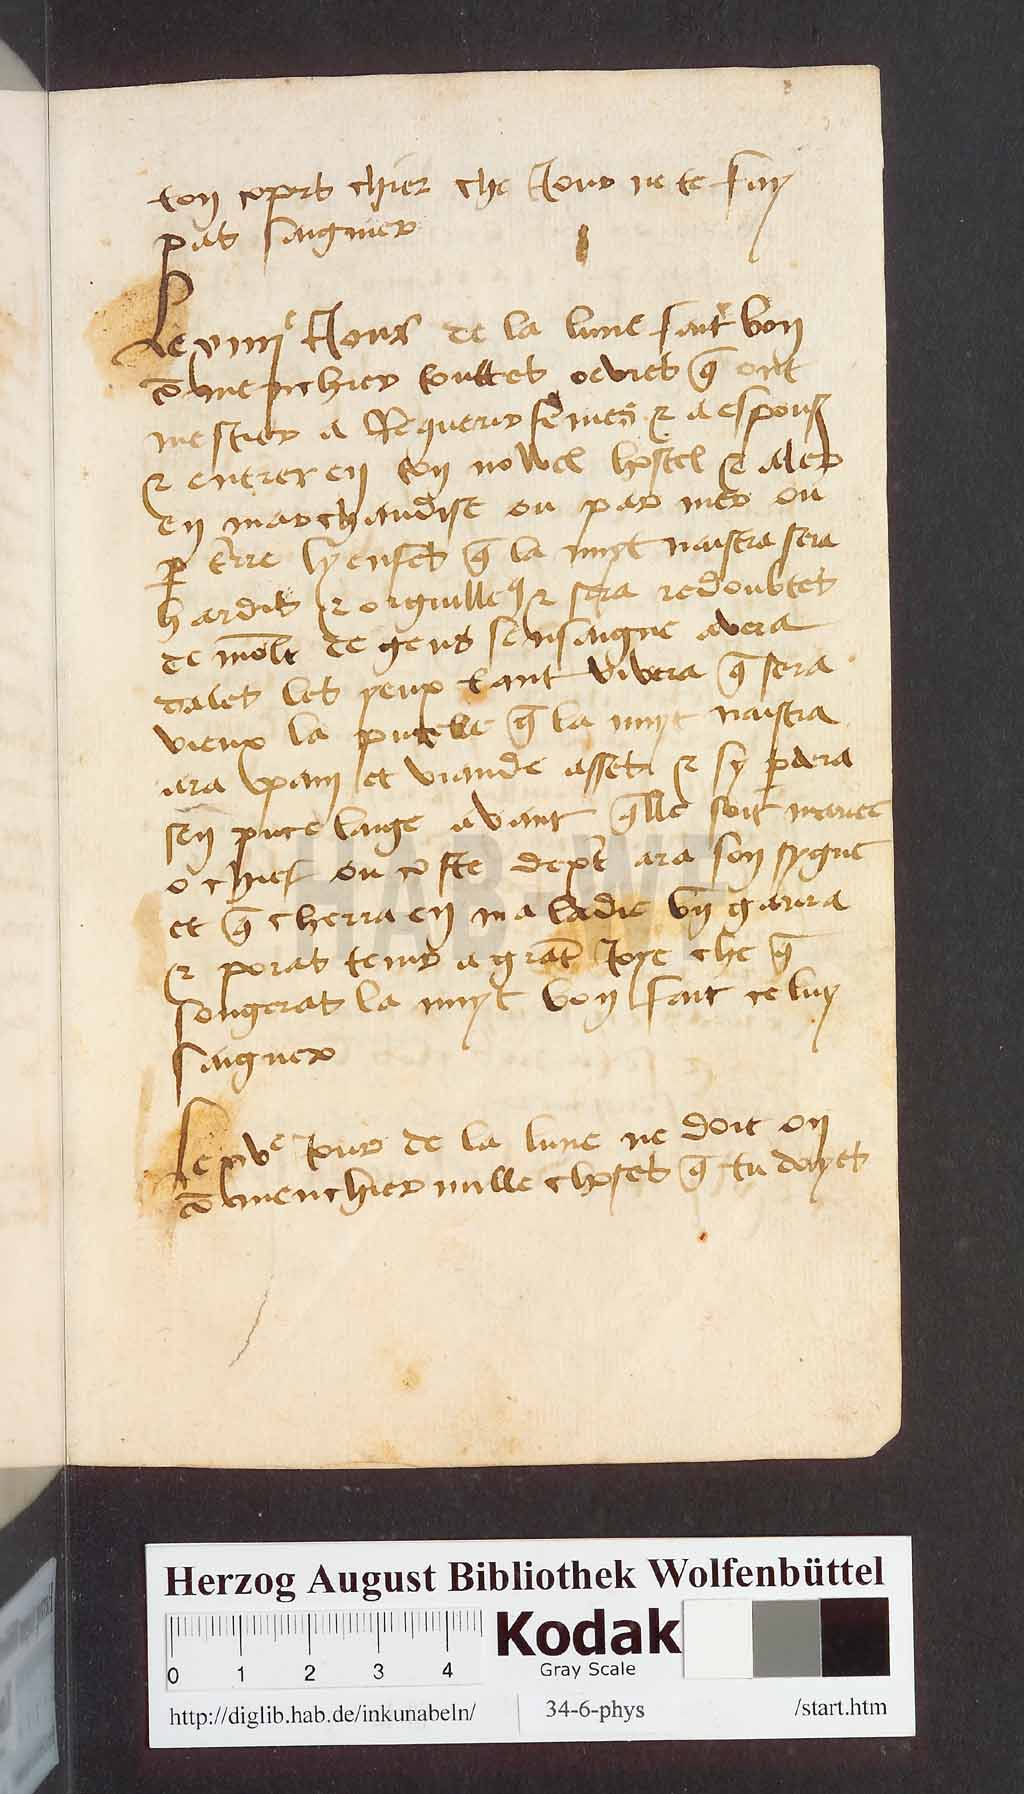 ton coprs chier che Jour ne te fay
pas saignier
Le xiiiiᵉ Jour de la lune fait bon
cōmenchier touttes oevres q̄ ont
mestier a Requerir fēmes & a espouser
& entrer en ton nowel hostel & aler
en marchandise ou par mer ou
ꝑ terre ly enfes q̄ la nuyt naistra sera
hardis & orguilleꝰ & sera redoubtes
de mōlt de gens sensaigne avera
dales les yeux tant vivera q̄ sera
vieux la pucelle q̄ la nuyt naistra
ara pain et viande asses & sy ꝑdera
sen pucelaige avant q̄lle soit mariee
o chief ou coste dext ara son sygne
et q̄ cherra en maladie bn̄ garira
& poras tenir a grāt Joye che q̄
songeras la nuyt bon fait ce luy
saigner
Le xvᵉ Jour de la lune ne doit on
cōmenchier nulle choses q̄ tu doyes
HAB-WF
Herzog August Bibliothek Wolfenbüttel
0 1 2 3 4
Kodak
Gray Scale
http://diglib.hab.de/inkunabeln/ 34-6-phys /start.htm